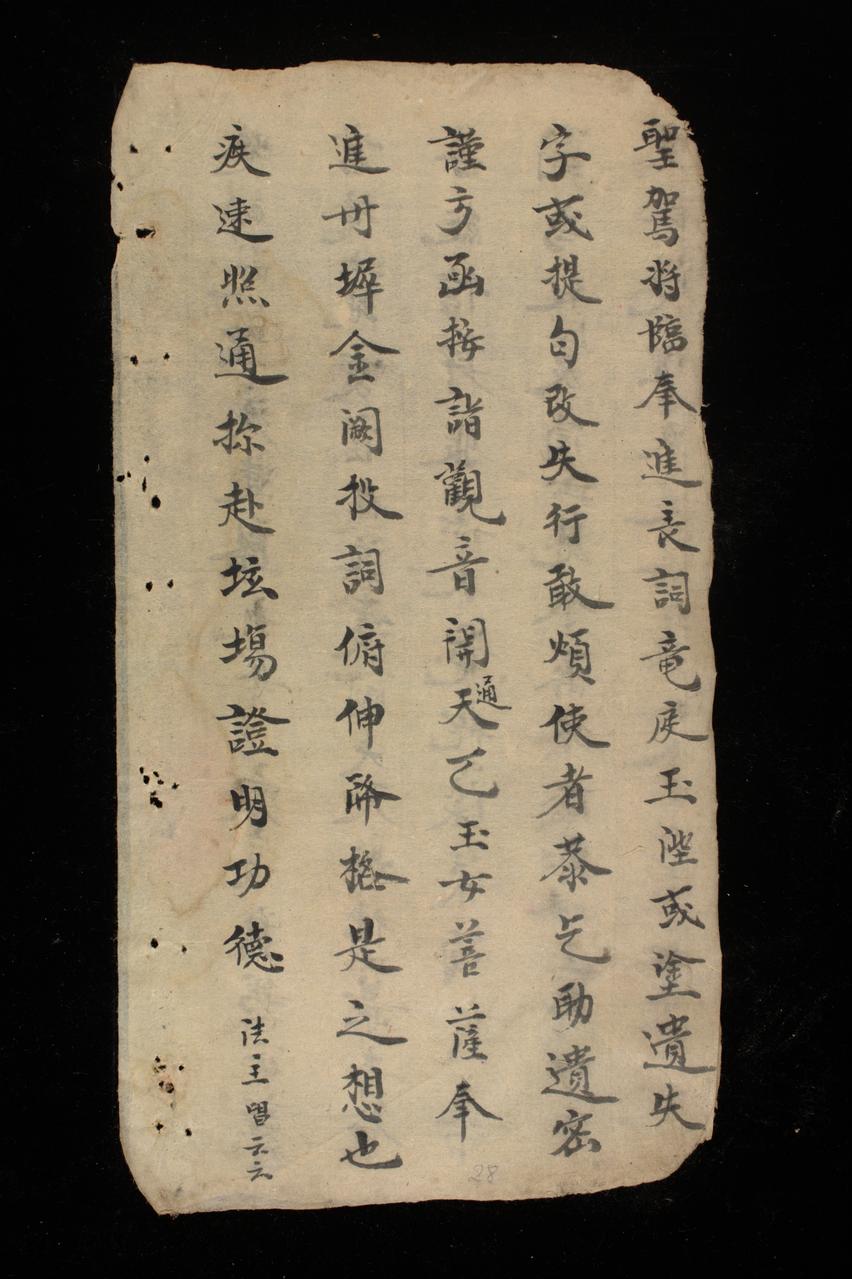 聖駕将臨奉進表詞竜㡳玉陛或塗遺失
字或提勾改失行敢煩使者恭乞助遺密
謹方函按詣觀音開通天乙玉女菩薩奉
進卌墀金阙投詞俯伸降格是之想也
疾速照通弥赴坛場證明功德 法主畱云云
28